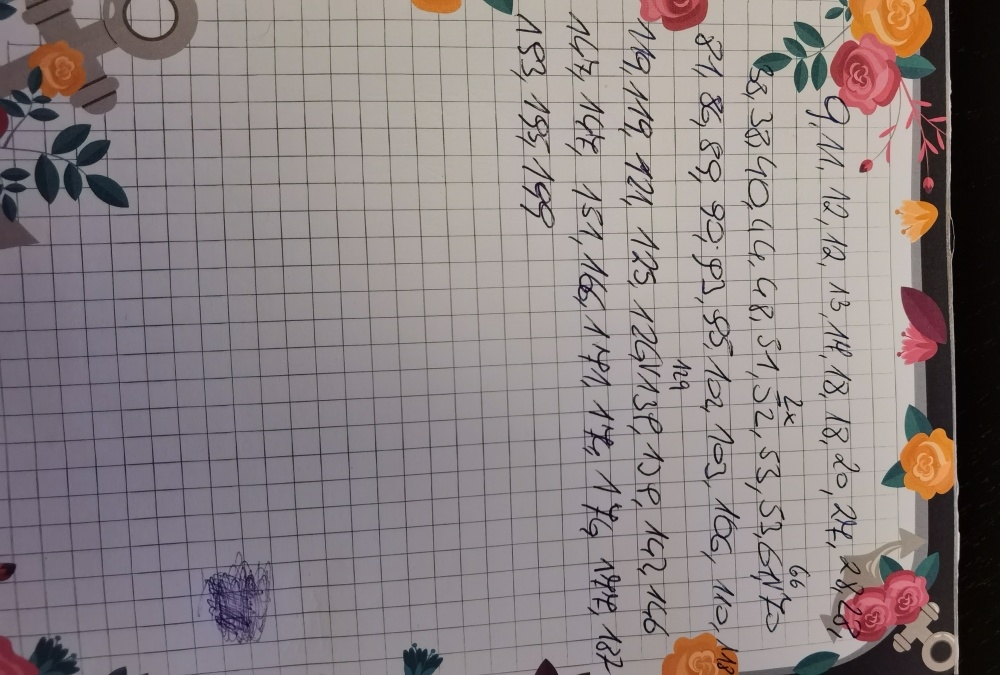 9, 11, 12, 12, 13, 14, 18, 18, 20, 27, 28, 28,
38, 38 40, 44, 48, 51, 52, 53, 53, 61, 70
2x
66
81, 86, 89, 90, 93, 95, 102, 103, 106, 110, 118
119, 119, 121, 125, 126, 137, 138, 142 146
129
147, 147, 151, 166, 171, 172, 176, 177, 187
193, 195, 199